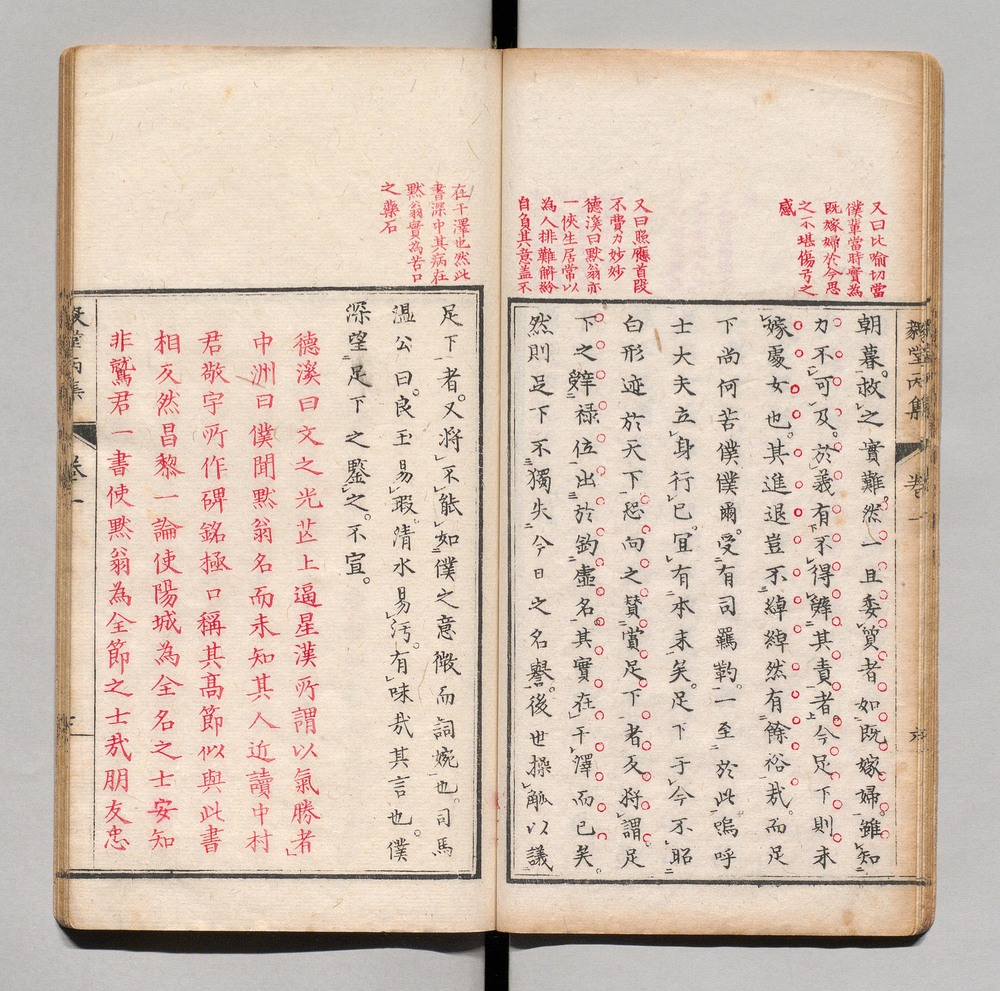 又曰比喻切當
僕輩當時實為
既嫁婦於今思
之不堪傷弓之
感
又曰照應首段
不費力妙妙
德溪曰默翁亦
一俠生居常以
為人排難解紛
自負其意蓋不
毅堂丙集
卷一
朝暮救之實難然一旦委質者如既嫁婦雖知
力不可及於義有不得辭其責者今足下則未
嫁處女也其進退豈不綽綽然有餘裕哉而足
下尚何苦僕僕爾受有司羈靮一至於此嗚呼
士大夫立身行己宜有本末矣足下于今不昭
白形迹於天下恐向之賛賞足下者反將謂足
下之辭祿位出於釣虛名其實在干澤而已矣
然則足下不獨失今日之名譽後世操觚以議
在干澤也然此
書深中其病在
默翁實為苦口
之藥石
足下者又將不能如僕之意微而詞婉也司馬
溫公曰良玉易瑕清水易汚有味哉其言也僕
深望足下之鑒之不宣
德溪曰文之光芒上逼星漢所謂以氣勝者
中洲曰僕聞默翁名而未知其人近讀中村
君敬宇所作碑銘極口稱其高節似與此書
相反然昌黎一論使陽城為全名之士安知
非鷲君一書使默翁為全節之士哉朋友忠
堂丙集
卷一